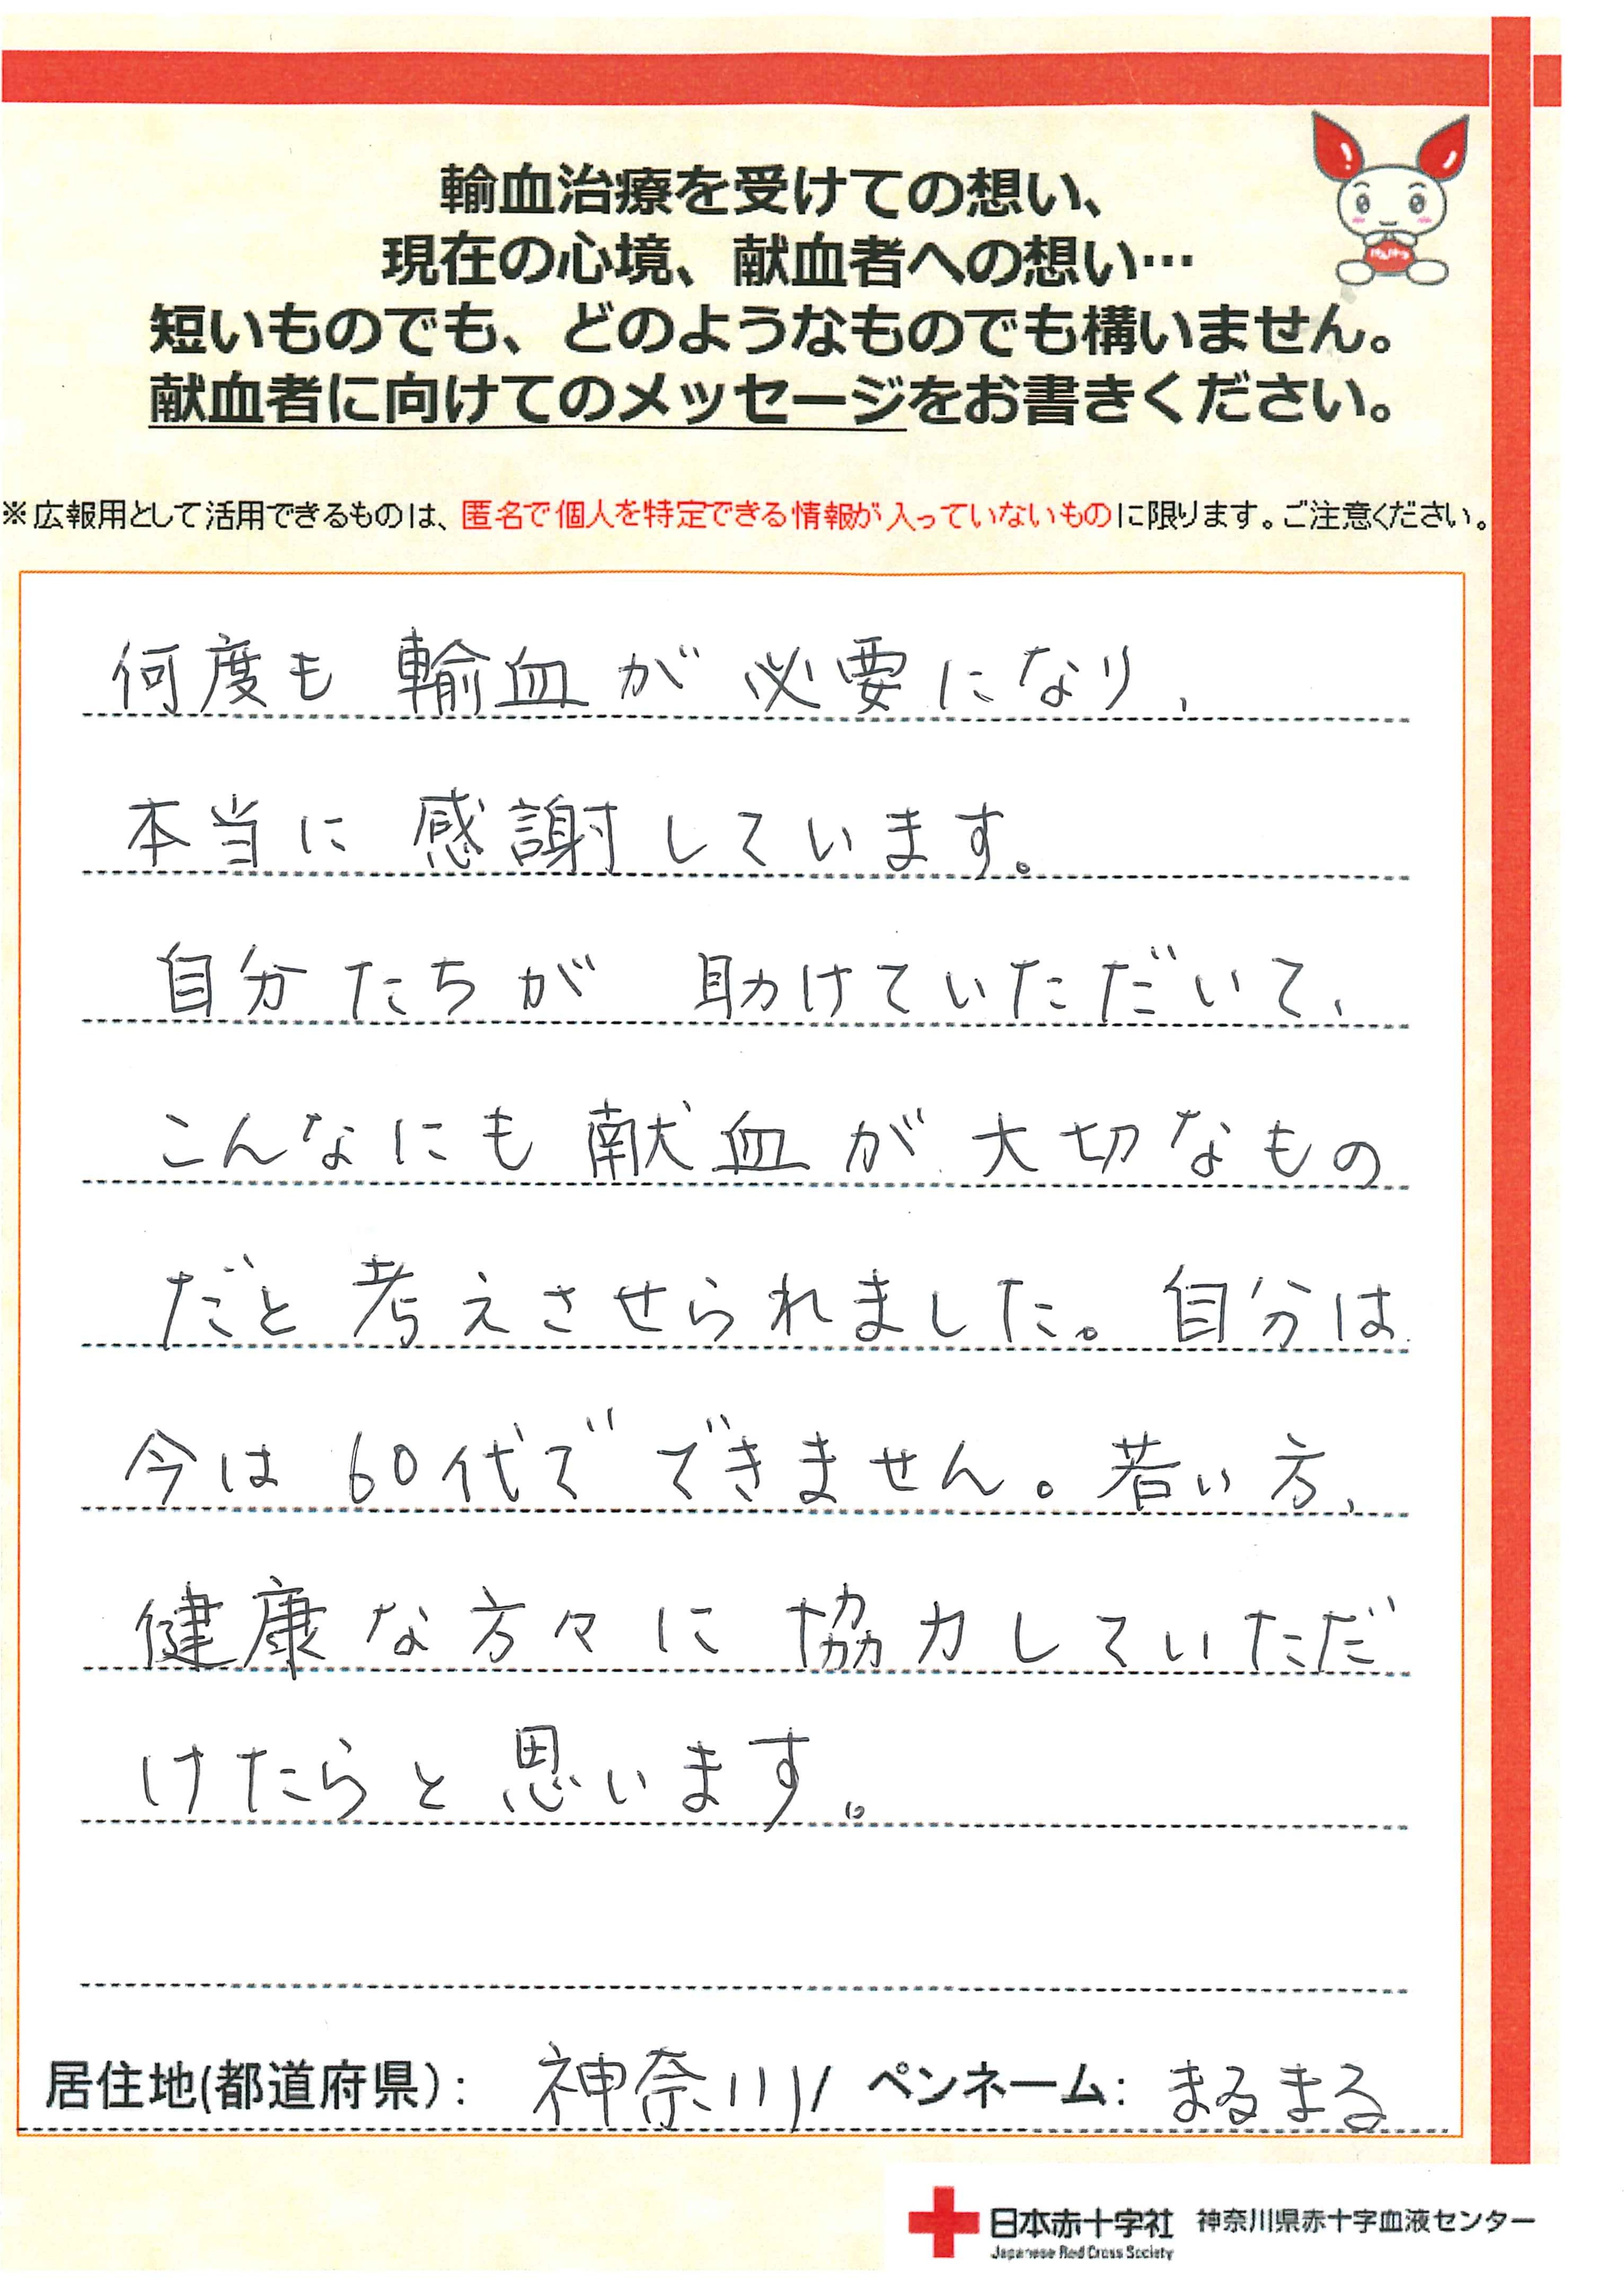 輸血治療を受けての想い、
現在の心境、献血者への想い…
短いものでも、どのようなものでも構いません。
献血者に向けてのメッセージをお書きください。
※広報用として活用できるものは、匿名で個人を特定できる情報が入っていないものに限ります。ご注意ください。
何度も輸血が必要になり、
本当に感謝しています。
自分たちが 助けていただいて、
こんなにも献血が大切なもの
だと考えさせられました。自分は
今は60代でできません。若い方、
健康な方々に協力していただ
けたらと思います。
居住地(都道府県): 神奈川/ ペンネーム: まるまる
日本赤十字社 神奈川県赤十字血液センター
Japanese Red Cross Society